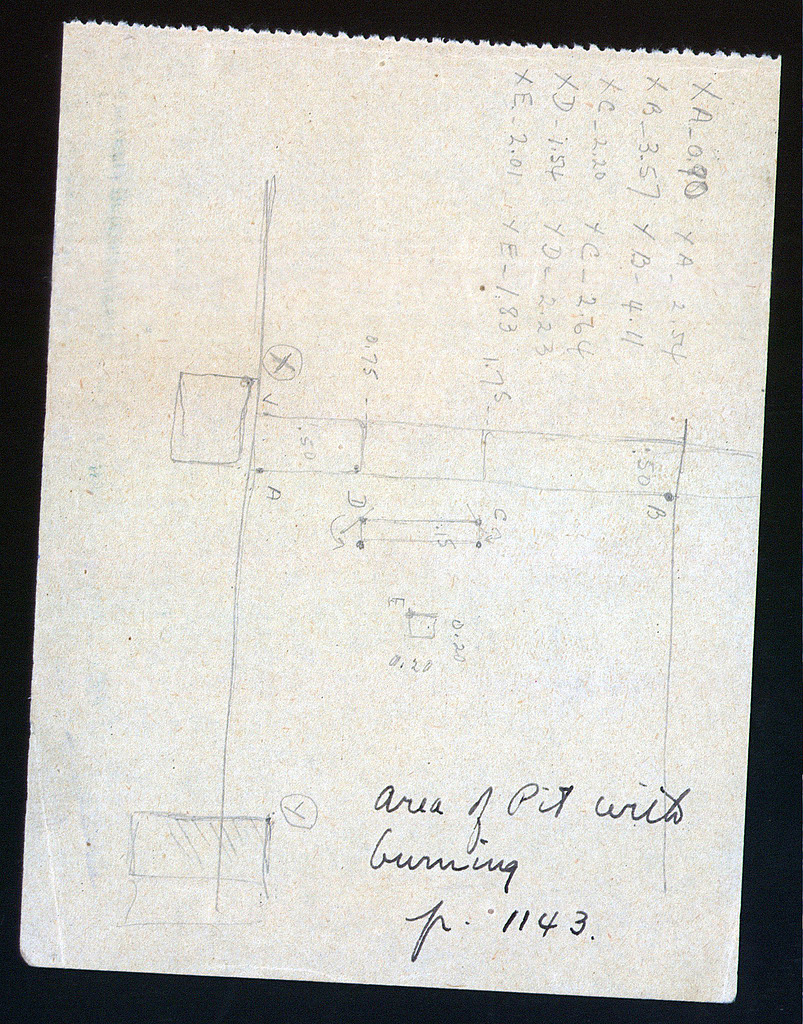 XA-0.90 YA-2.54
XB-3.57 YB-4.11
XC-2.20 YC-2.64
XD-1.54 YD-2.23
XE-2.01 YE-1.83
0.75
1.75
X
.50
.50
A
B
D
C
.15
E
0.20
0.20
Y
area of Pit with
burning
p. 1143.